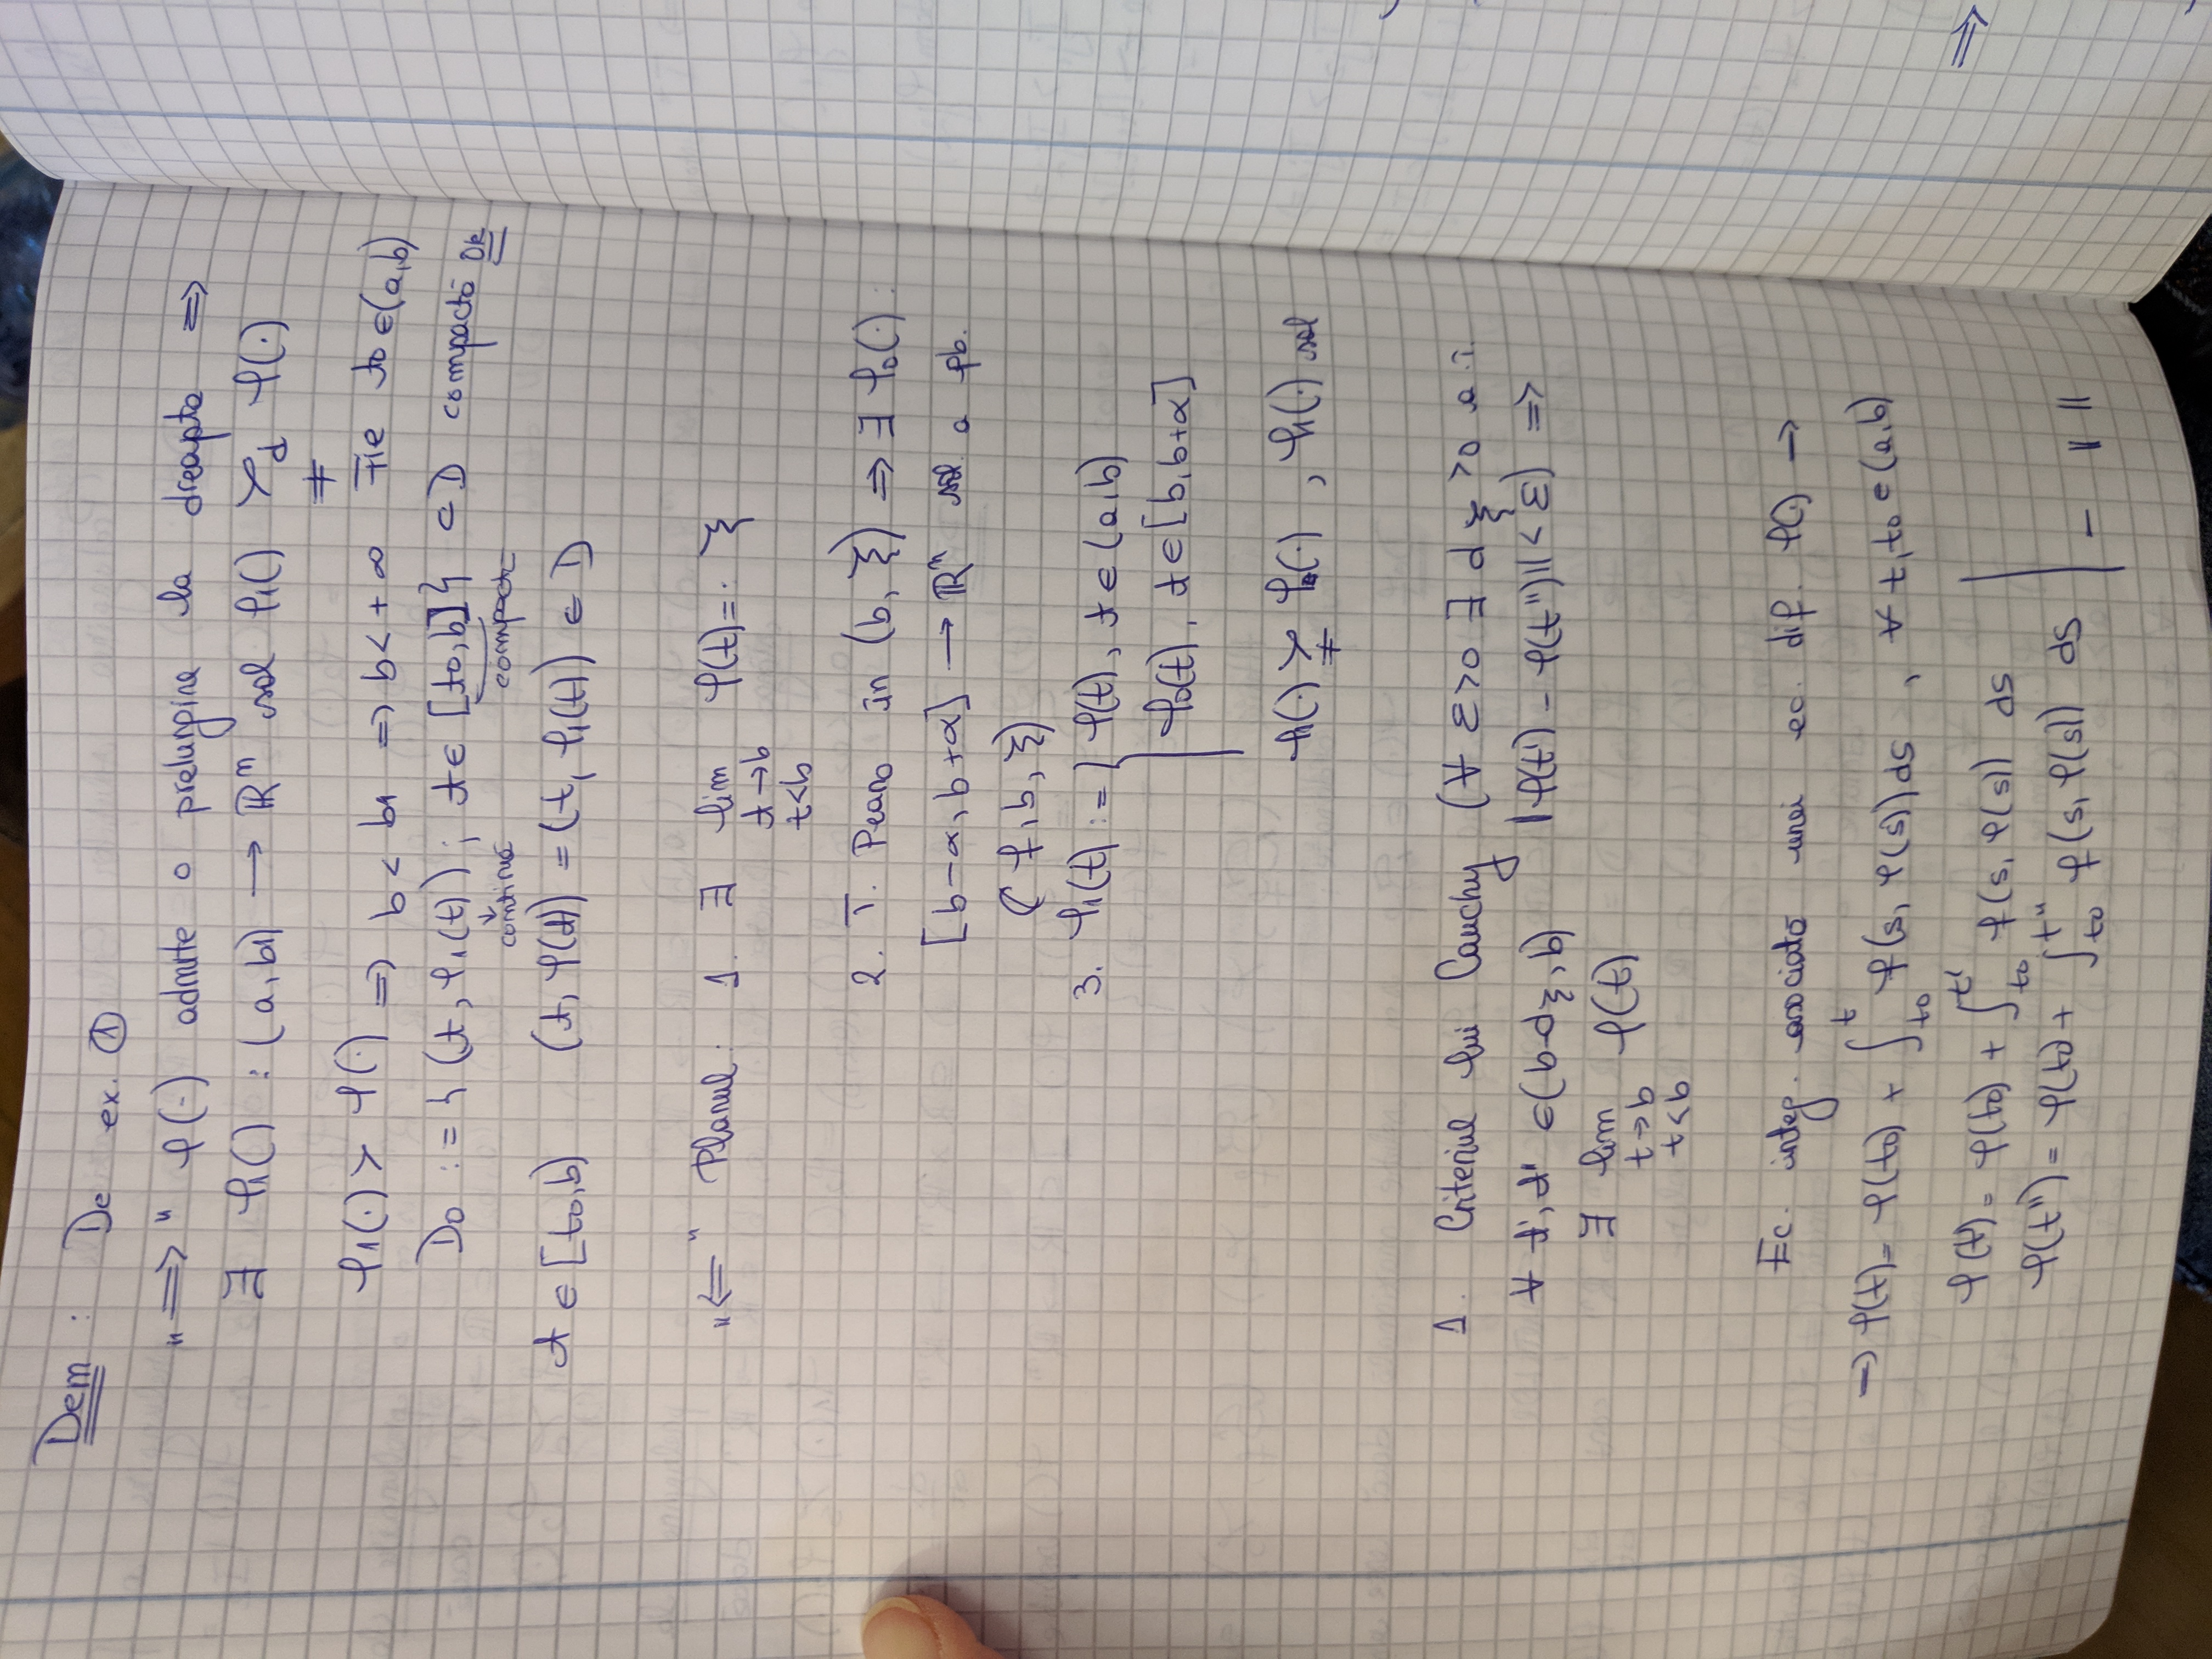 Dem : De ex. ①
„⟹" φ(·) admite o prelungire la dreapta ⟹
∃ φ1() : (a, b1) → ℝⁿ sol φ1() ≻d φ(·)
≠
φ1(·) ≻ φ(·) ⟹ b < b1 ⟹ b < +∞ Fie t0 ∈ (a,b)
D0 := { (t, φ1(t)) ; t ∈ [t0,b] } ⊂ D compactă OK
↓
continuă compact
t ∈ [t0,b) (t, φ(t)) = (t, φ1(t)) ∈ D
„⟸" Planul: 1. ∃ lim φ(t) =: ξ
t→b
t<b
2. T. Peano în (b, ξ) ⟹ ∃ φ0(·) :
[b-α, b+α] → ℝⁿ sol. a pb.
(f, b, ξ)
3. φ1(t) := { φ(t), t ∈ (a,b)
φ0(t), t ∈ [b, b+α]
φ1(·) ≻ φ(·) , φ1(·) sol
≠
1. Criteriul lui Cauchy (∀ ε>0 ∃ dξ >0 a.î.
∀ t', t'' ∈ (b-dξ, b) ||φ(t') - φ(t'')|| < ε) ⟹
∃ lim φ(t)
t→b
t<b
Ec. integ. asociată unei ec. dif. φ(·) →
→ φ(t) = φ(t0) + ∫_{t0}^{t} f(s, φ(s)) ds , ∀ t, t0 ∈ (a,b)
φ(t') = φ(t0) + ∫_{t0}^{t'} f(s, φ(s)) ds
φ(t'') = φ(t0) + ∫_{t0}^{t''} f(s, φ(s)) ds | - || ||
⟹